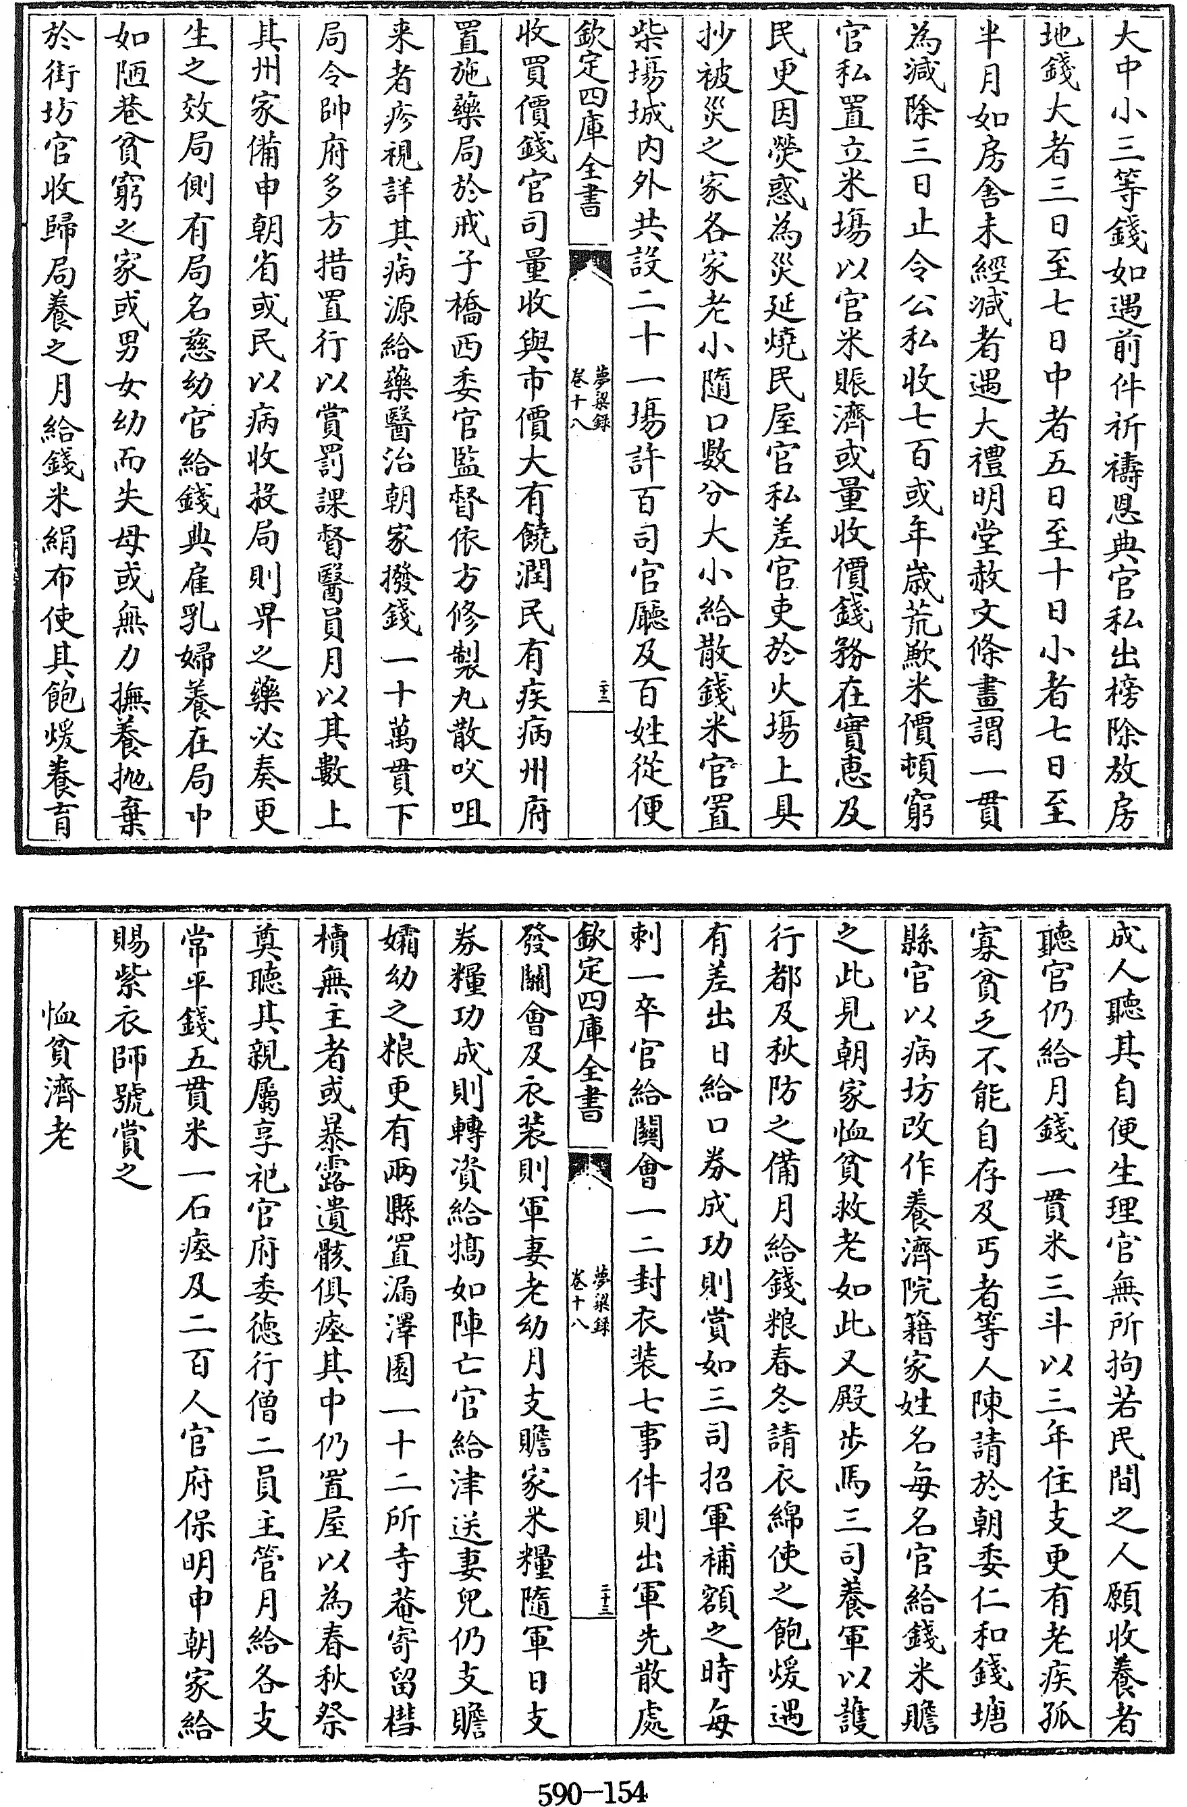 大中小三等錢如遇前件祈禱恩典官私出榜除放房
地錢大者三日至七日中者五日至十日小者七日至
半月如房舍未經減者遇大禮明堂赦文條畫謂一貫
為減除三日止令公私收七百或年歲荒歉米價頓窮
官私置立米塲以官米賑濟或量收價錢務在實惠及
民更因熒惑為災延燒民屋官私差官吏於火塲上具
抄被災之家各家老小隨口數分大小給散錢米官置
柴塲城內外共設二十一塲許百司官廳及百姓從便
欽定四庫全書
夢粱録
卷十八
二十二
收買價錢官司量收與市價大有饒潤民有疾病州府
置施藥局於戒子橋西委官監督依方修製丸散㕮咀
来者疹視詳其病源給藥醫治朝家撥錢一十萬貫下
局令帥府多方措置行以賞罰課督醫員月以其數上
其州家備申朝省或民以病收投局則畀之藥必奏更
生之效局側有局名慈幼官給錢典雇乳婦養在局中
如陋巷貧窮之家或男女幼而失母或無力撫養抛棄
於街坊官收歸局養之月給錢米絹布使其飽煖養育
成人聽其自便生理官無所拘若民間之人願收養者
聽官仍給月錢一貫米三斗以三年住支更有老疾孤
寡貧乏不能自存及丐者等人陳請於朝委仁和錢塘
縣官以病坊改作養濟院籍家姓名每名官給錢米贍
之此見朝家恤貧救老如此又殿步馬三司養軍以護
行都及秋防之備月給錢粮春冬請衣綿使之飽煖遇
有差出日給口券成功則賞如三司招軍補額之時每
刺一卒官給關會一二封衣装七事件則出軍先散處
欽定四庫全書
夢粱録
卷十八
二十三
發關會及衣装則軍妻老幼月支贍家米糧隨軍日支
券糧功成則轉資給犒如陣亡官給津送妻兒仍支贍
孀幼之粮更有兩縣置漏澤園一十二所寺菴寄留槥
櫝無主者或暴露遺骸俱瘞其中仍置屋以為春秋祭
奠聽其親屬享祀官府委德行僧二員主管月給各支
常平錢五貫米一石瘞及二百人官府保明申朝家給
賜紫衣師號賞之
恤貧濟老
590-154